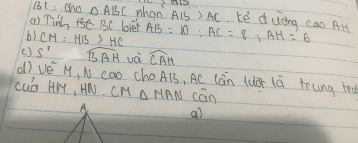 B1: Cho △ ABC nhọn AB > AC. kẻ đường cao AH
a) Tính BC biết AB = 10; AC = 8, AH = 6
b) CM: HB > HC
c) S² BAH và CAH
d) Vẽ M, N cao cho AB, AC lần lượt là trung trực
của HM, HN. CM △ MAN cân
A
a)